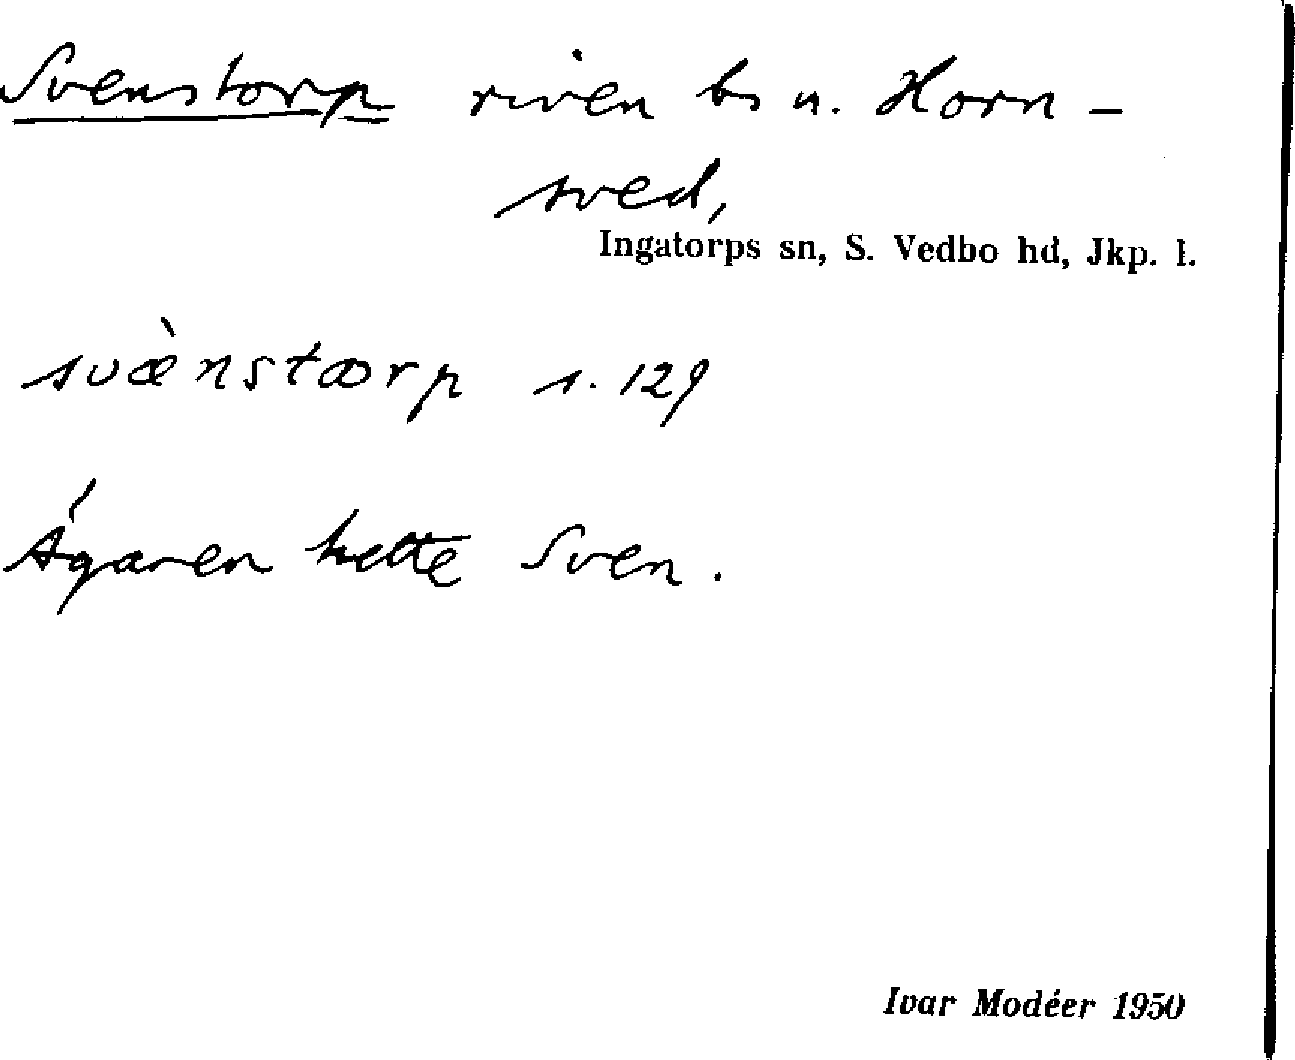 Svenstorp riven bs u. Horn-
sved,
Ingatorps sn, S. Vedbo hd, Jkp. l.
svæ̀nstærp s. 129
Ägaren hette Sven.
Ivar Modéer 1950